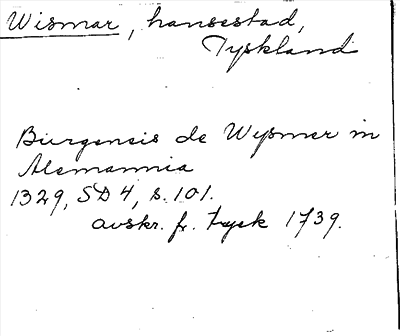 Wismar, hansestad,
Tyskland
Burgensis de Wysmer in
Alemannia
1329, SD 4, s. 101.
avskr. fr. tryck 1739.